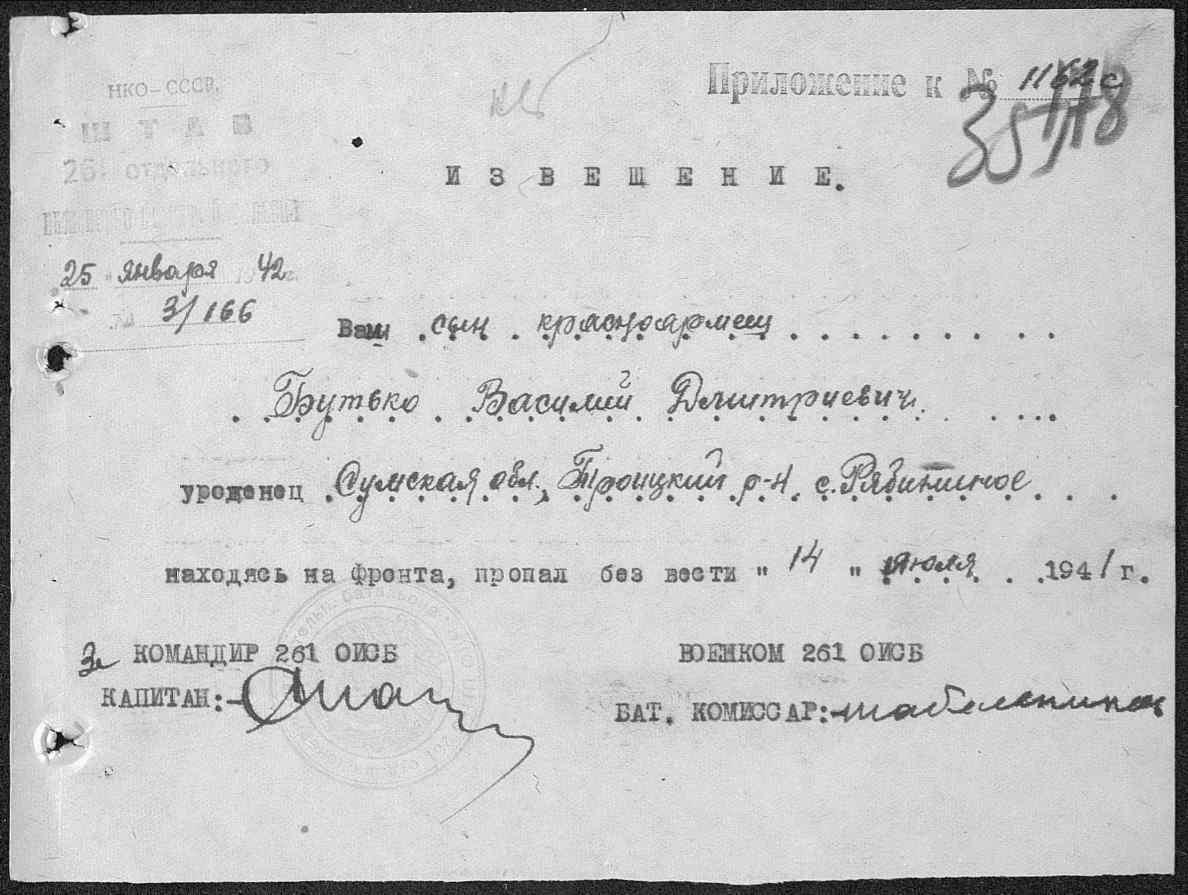 НКО-СССР.
ШТАБ
261 отдельного
25 января 1942 г.
№ 3/166
Приложение к № 1162с
35
ИЗВЕЩЕНИЕ.
Ваш сын красноармеец
Бутько Василий Дмитриевич
уроженец Сумская обл., Троицкий р-н. с. Рябинное
находясь на Фронта, пропал без вести "14" июля 1941 г.
За КОМАНДИР 261 ОИСБ
КАПИТАН:-
ВОЕНКОМ 261 ОИСБ
БАТ. КОМИССАР:-